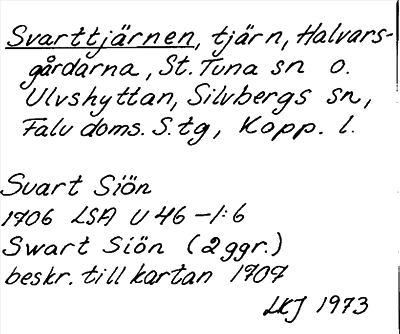 Svarttjärnen, tjärn, Halvars-
gårdarna, St. Tuna sn o.
Ulvshyttan, Silvbergs sn,
Falu doms. S. tg, Kopp. l.
Svart Siön
1706 LSA U 46 – 1:6
Swart Siön (2 ggr.)
beskr. till kartan 1707
LKJ 1973